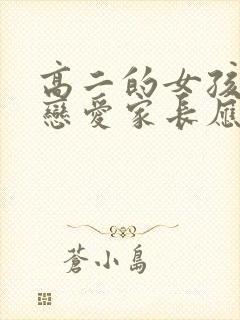 高二的女孩
戀愛家長應
蒼小島